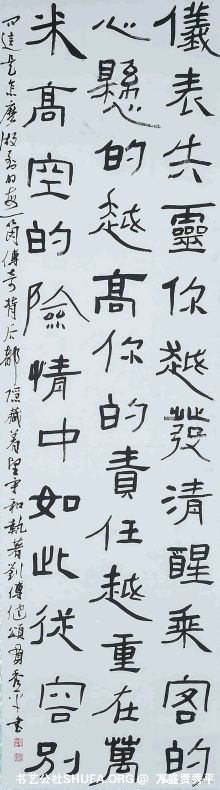 儀表失靈你越發清醒乘客的
心懸的越高你的責任越重在萬
米高空的險情中如此從容別
问這是怎麼做到的每一箇傳奇背后都隐藏著堅守和執著劉傳健頌賈秀平書
书艺公社SHUFA.ORG @ 万盛贾秀平